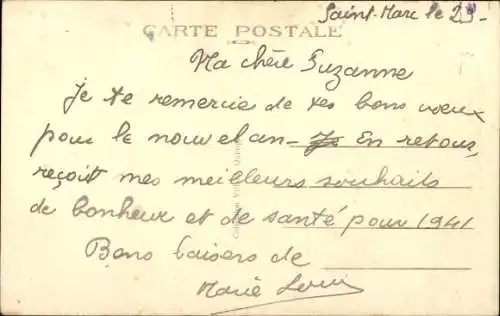 Saint-Marc le 29-
CARTE POSTALE
Ma chère Suzanne
Je te remercie de tes bons vœux
pour le nouvel an - Je En retour,
reçoit mes meilleurs souhaits
de bonheur et de santé pour 1941
Bons baisers de
Marie Louise